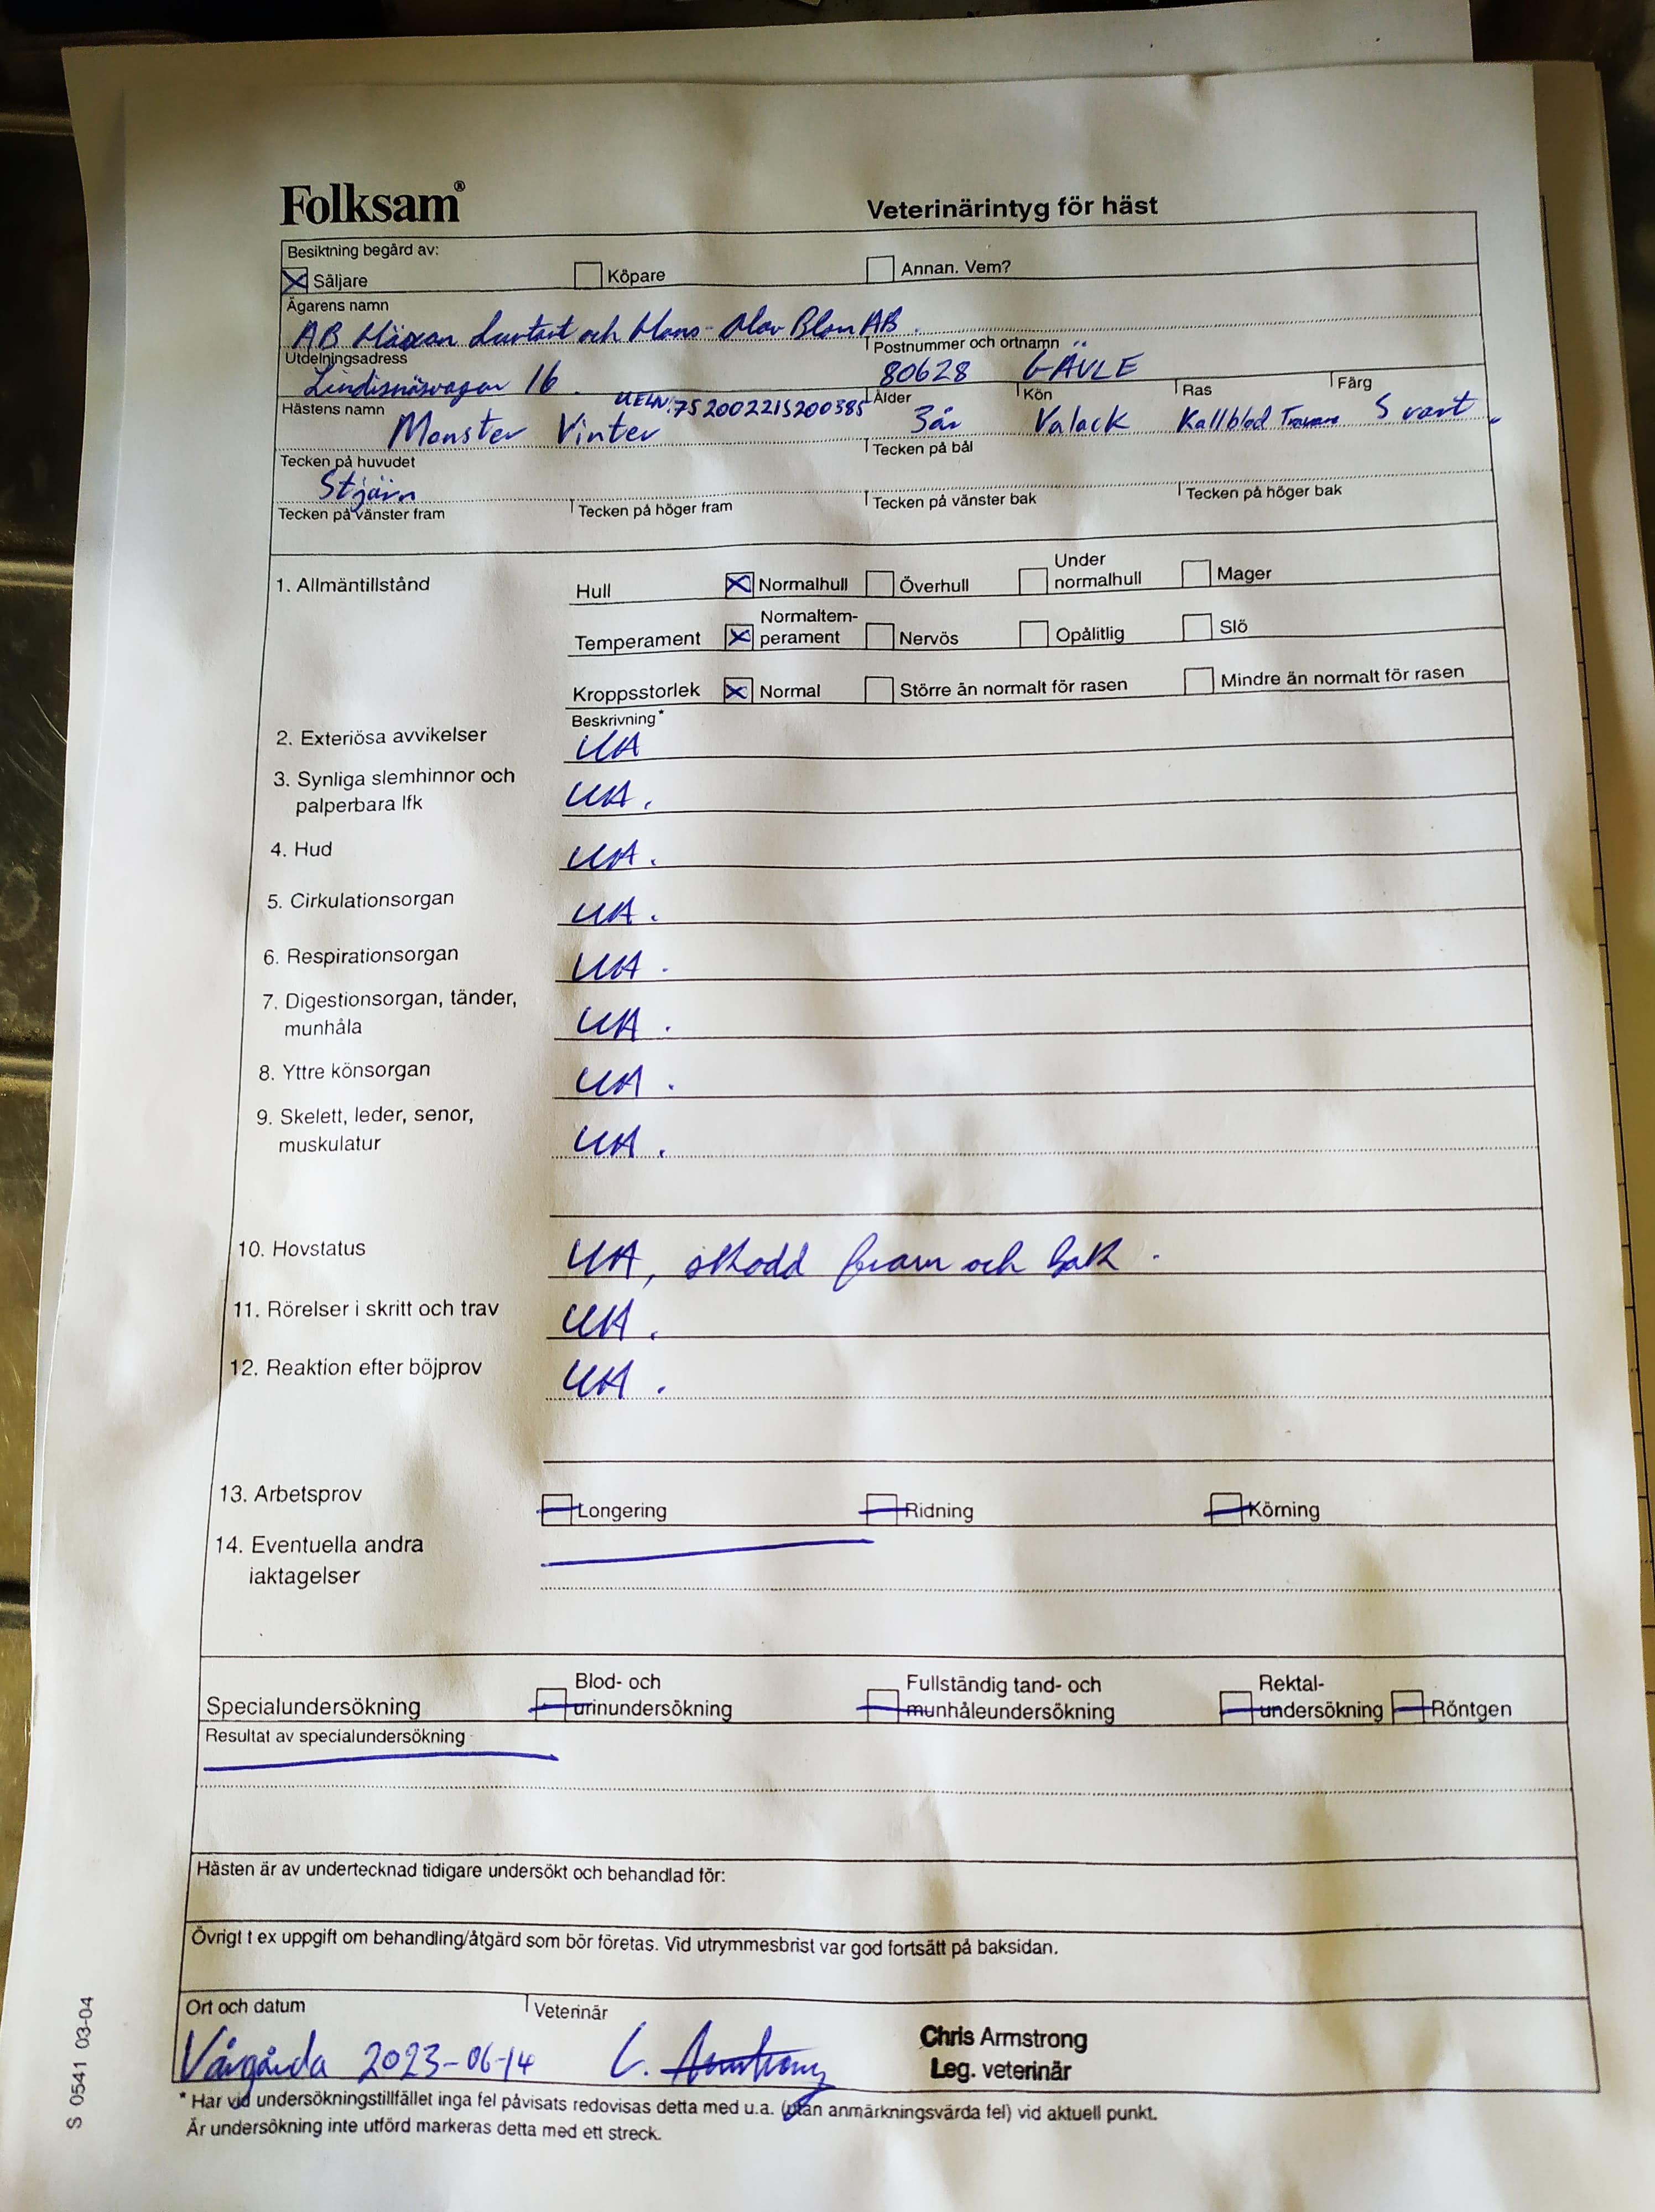 Folksam®
Veterinärintyg för häst
Besiktning begärd av:
Säljare Köpare Annan. Vem?
Ägarens namn
AB och Hans-Olov Blom AB
Utdelningsadress Postnummer och ortnamn
16 80628 GÄVLE
Hästens namn UELN: 752002215200385 Ålder Kön Ras Färg
Monster Vinter 3år Valack Kallblod Travare Svart
Tecken på huvudet Tecken på bål
Stjärn
Tecken på vänster fram Tecken på höger fram Tecken på vänster bak Tecken på höger bak
1. Allmäntillstånd Hull Normalhull Överhull Under normalhull Mager
Temperament Normaltem-perament Nervös Opålitlig Slö
Kroppsstorlek Normal Större än normalt för rasen Mindre än normalt för rasen
Beskrivning*
2. Exteriösa avvikelser UA
3. Synliga slemhinnor och
palperbara lfk UA.
4. Hud UA.
5. Cirkulationsorgan UA.
6. Respirationsorgan UA.
7. Digestionsorgan, tänder,
munhåla UA.
8. Yttre könsorgan UA.
9. Skelett, leder, senor,
muskulatur UA.
10. Hovstatus UA, skodd fram och bak.
11. Rörelser i skritt och trav UA.
12. Reaktion efter böjprov UA.
13. Arbetsprov Longering Ridning Körning
14. Eventuella andra
iaktagelser
Specialundersökning Blod- och urinundersökning Fullständig tand- och munhåleundersökning Rektal-undersökning Röntgen
Resultat av specialundersökning
Hästen är av undertecknad tidigare undersökt och behandlad för:
Övrigt t ex uppgift om behandling/åtgärd som bör företas. Vid utrymmesbrist var god fortsätt på baksidan.
Ort och datum Veterinär
Vårgårda 2023-06-14 C. Armstrong
Chris Armstrong
Leg. veterinär
* Har vid undersökningstillfället inga fel påvisats redovisas detta med u.a. (utan anmärkningsvärda fel) vid aktuell punkt.
Är undersökning inte utförd markeras detta med ett streck.
S 0541 03-04